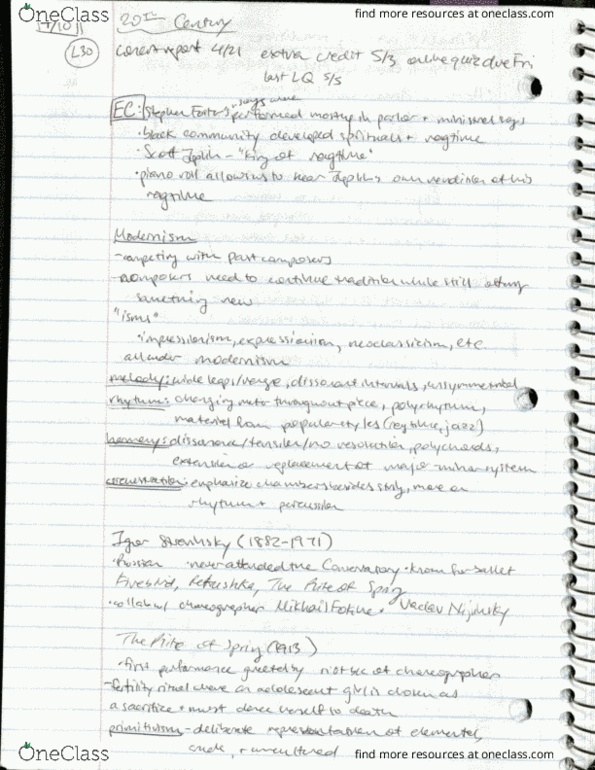 OneClass
find more resources at oneclass.com
20th Century
L30
concert report 4/21 extra credit 5/3 online quiz due Fri
last LQ 5/3
songs were
EC: Stephen Foster's performed mostly in parlor + minstrel
• black community developed spirituals + ragtime
• Scott Joplin - "king of ragtime"
• piano roll allows us to hear Joplin's own rendition of his
ragtime
Modernism
- competing with past composers
- composers need to continue tradition while still
something new
"isms"
• impressionism, expressionism, neoclassicism, etc
all under modernism
melody: wide leaps/range, dissonant intervals, assymmetrical
rhythm: changing meter throughout piece, polyrhythm,
material from popular styles (ragtime, jazz)
harmony: dissonance/tension/no resolution, polychords,
extension or replacement of major-minor system
orchestration: emphasize chambers besides string, more on
rhythm + percussion
Igor Stravinsky (1882-1971)
• Russian • never attended the Conservatory • known for ballet
Firebird, Petrushka, The Rite of Spring
• collab w/ choreographer Mikhail Fokine + Vaclav Nijinsky
The Rite of Spring (1913)
• first performance greeted by riot bc of choreographer
- fertility ritual where an adolescent girl is chosen as
a sacrifice + must dance herself to death
primitivism - deliberate representation of elemental,
crude, + uncultured
OneClass
find more resources at oneclass.com